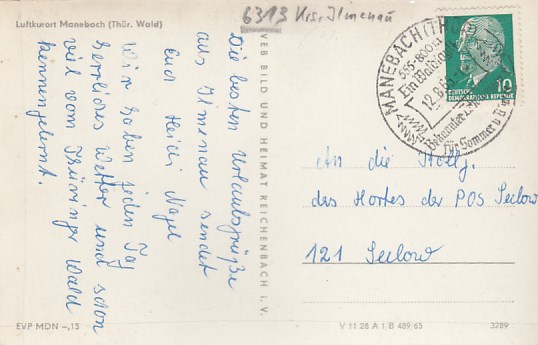 6313 Krs. Ilmenau
Luftkurort Manebach (Thür. Wald)
Die besten Urlaubsgrüße
aus Ilmenau sendet
euch Heidi Nagel
Wir haben jeden Tag
herrliches Wetter und schon
viel vom Thüringer Wald
kennengelernt.
VEB BILD UND HEIMAT REICHENBACH i. V.
MANEBACH (THÜR
555-800
Ein Waldid
12.8.65
Bekannter
für Sommer u.
10
DEUTSCHE
DEMOKRATISCHE REPUBLIK
An die Kollg.
des Hortes der POS Seelow
121 Seelow
EVP MDN -,15
V 11 28 A 1 B 489 65
3289